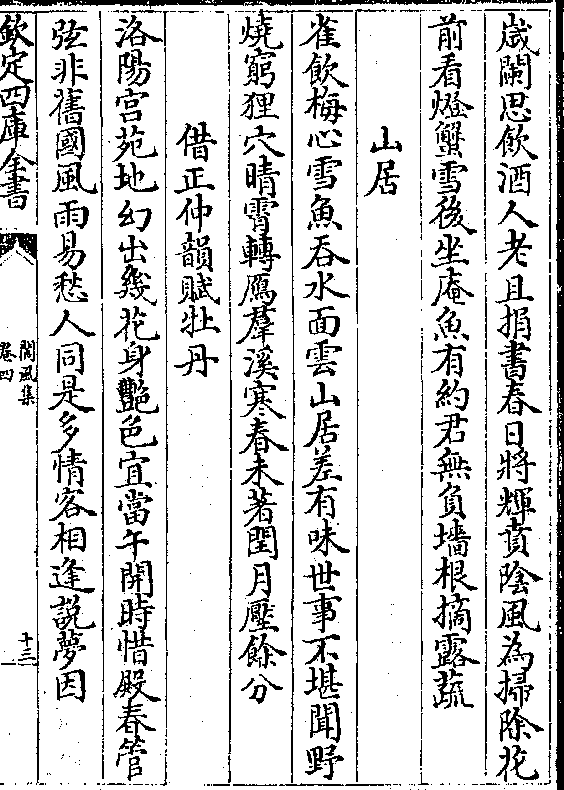 歲闌思飲酒人老且捐書春日將輝賁陰風為掃除花
前看燈蟹雪後坐庵魚有約君無負墻根摘露蔬
山居
雀飲梅心雪魚吞水面雲山居差有味世事不堪聞野
燒窮狸穴晴霄轉鴈羣溪寒春未著閏月壓餘分
借正仲韻賦牡丹
洛陽宫苑地幻出幾花身艷色宜當午開時惜殿春管
弦非舊國風雨易愁人同是多情客相逢說夢因
欽定四庫全書
閬風集
卷四
十三